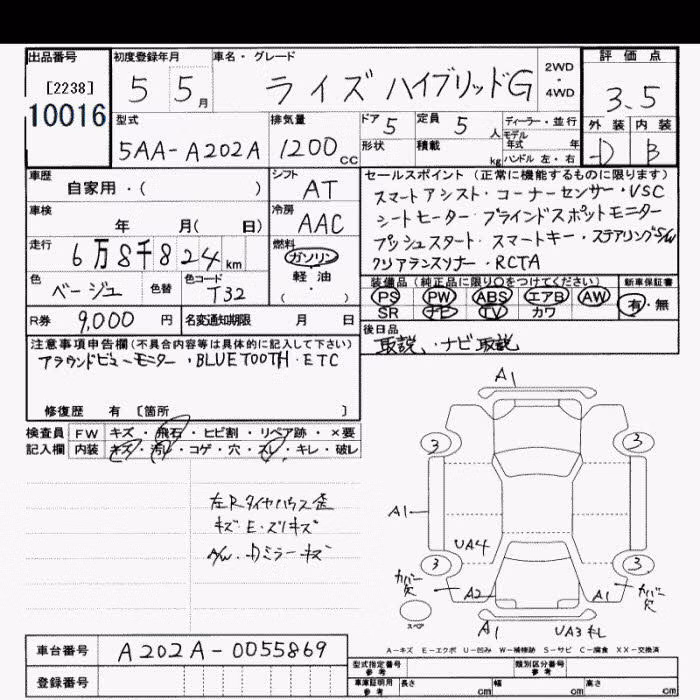 出品番号 初度登録年月 車名・グレード 2WD・4WD 評価点
[2238] 5 5月 ライズ ハイブリッドG 3.5
10016
型式 排気量 ドア 5 定員 5人 ディーラー・並行 外装 内装
5AA-A202A 1200cc 形状 積載 kg モデル年式 年 D B
ハンドル 左・右
車歴 シフト セールスポイント (正常に機能するものに限ります)
自家用・( ) AT スマートアシスト・コーナーセンサー・VSC
車検 冷房 シートヒーター・ブラインドスポットモニター
年 月(日) AAC プッシュスタート・スマートキー・ステアリングS/W
走行 燃料 クリアランスソナー・RCTA
6万8千824km ガソリン 装備品 (純正品に限り○をつけてください) 新車保証書
色 色替 色コード 軽・油 PS PW ABS エアB AW 有・無
ベージュ T32 ( ・ ) SR ナビ TV カワ
R券 9,000円 名変通知期限 月 日 後日品
注意事項申告欄(不具合内容等は具体的に記入して下さい) 取説、ナビ取説
アラウンドビューモニター・BLUETOOTH・ETC
修復歴 有 [箇所 ]
検査員 FW キズ・飛石・ヒビ割・リペア跡・×要
記入欄 内装 キズ・汚レ・コゲ・穴・スレ・キレ・破レ
A1
3 3
左Rタイヤハウス歪
キズ・E・ズリキズ A1
A/W・Dミラーキズ UA4
3 3
カバー欠 A2 A1 カバー欠
スペア
A1 UA3キレ
A-キズ E-エクボ U-凹み W-補修跡 S-サビ C-腐食 XX-交換済
車台番号 A202A-0055869
型式指定番号 参考 類別区分番号 参考
登録番号 車庫証明用 参考 長さ cm 幅 cm 高さ cm